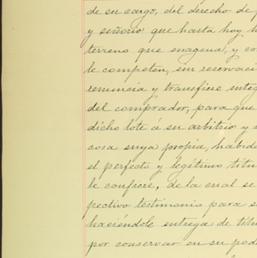 de su cargo, del derecho de p
y señorio que hasta hoy h
terreno que enagena, y co
le competen, sin reservacio
renuncia y transfiere integ
del comprador, para que
dicho lote á su arbitrio y
cosa suya propia, habida
el perfecto y legitimo titu
le confiere, de la cual se
pectivo testimonio para s
haciéndole entrega de titu
por conservar en su pode